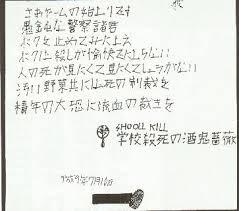 さあゲームの始まりです
愚鈍な警察諸君
ボクを止めてみたまえ
ボクは殺しが愉快でたまらない
人の死が見たくて見たくてしょうがない
汚い野菜共には死の制裁を
積年の大怨に流血の裁きを
SHOOLL KILL
学校殺死の酒鬼薔薇